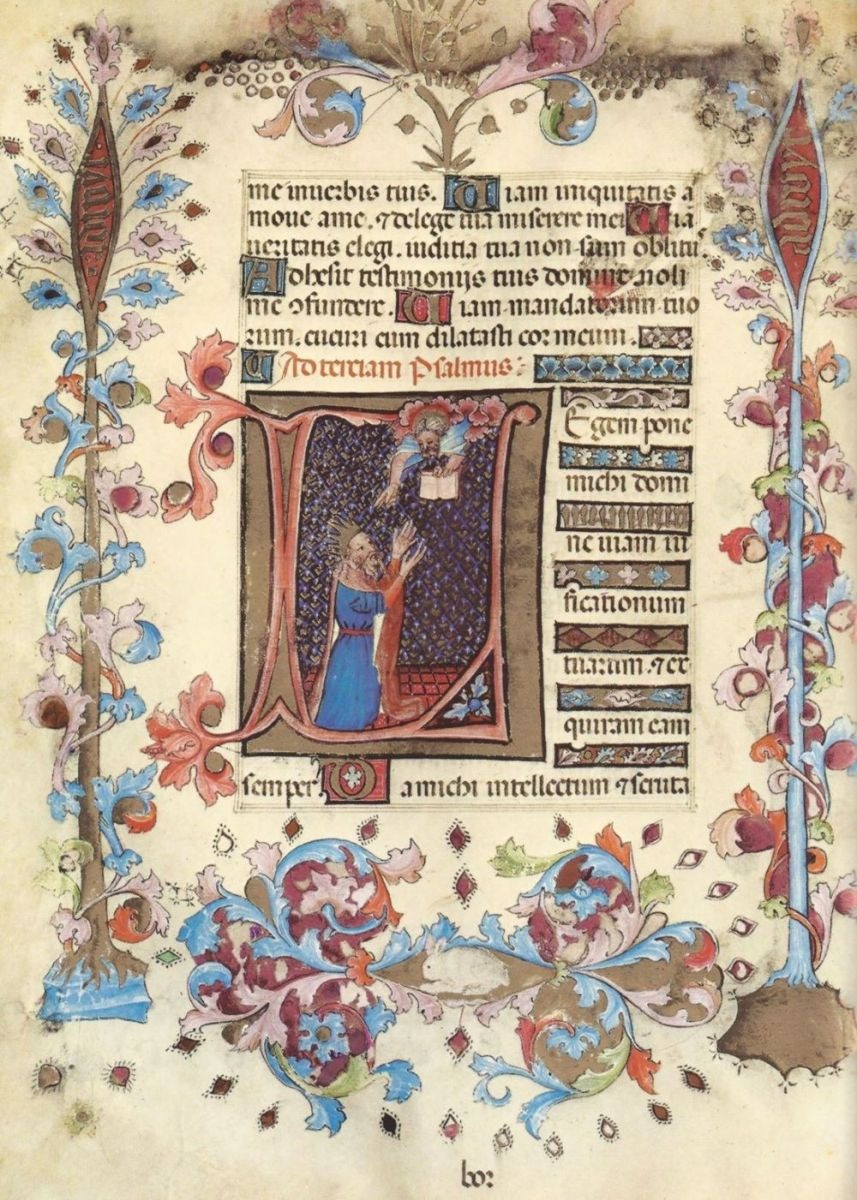 me inuerbis tuis. Uiam iniquitatis a
moue ame. ⁊delege tua miserere mei Uia
ueritatis elegi. iuditia tua non sum oblitu
Adhesit testimonijs tuis domine noli
me ⁊fundere. Uiam mandatorum tuo
rum. cucuri cum dilatasti cor meum.
Ad terciam Psalmus:
LEgem pone
michi domi
ne uiam iu
stificationum
tuarum. ⁊ex
quiram eam
semper Da michi intellectum ⁊scruta
bor